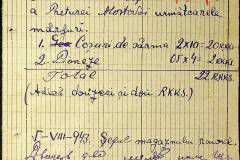 a Preturei Mostovoi următoarele
mărfuri.
1. Coșuri de sârmă 2x10-20 RKKS
2. Donețe 0,5x4 - 2. RKKS
Total 22. RKKS.
(Adică douăzeci și doi RKKS.)
5-VIII-943. Șeful magazinului raional